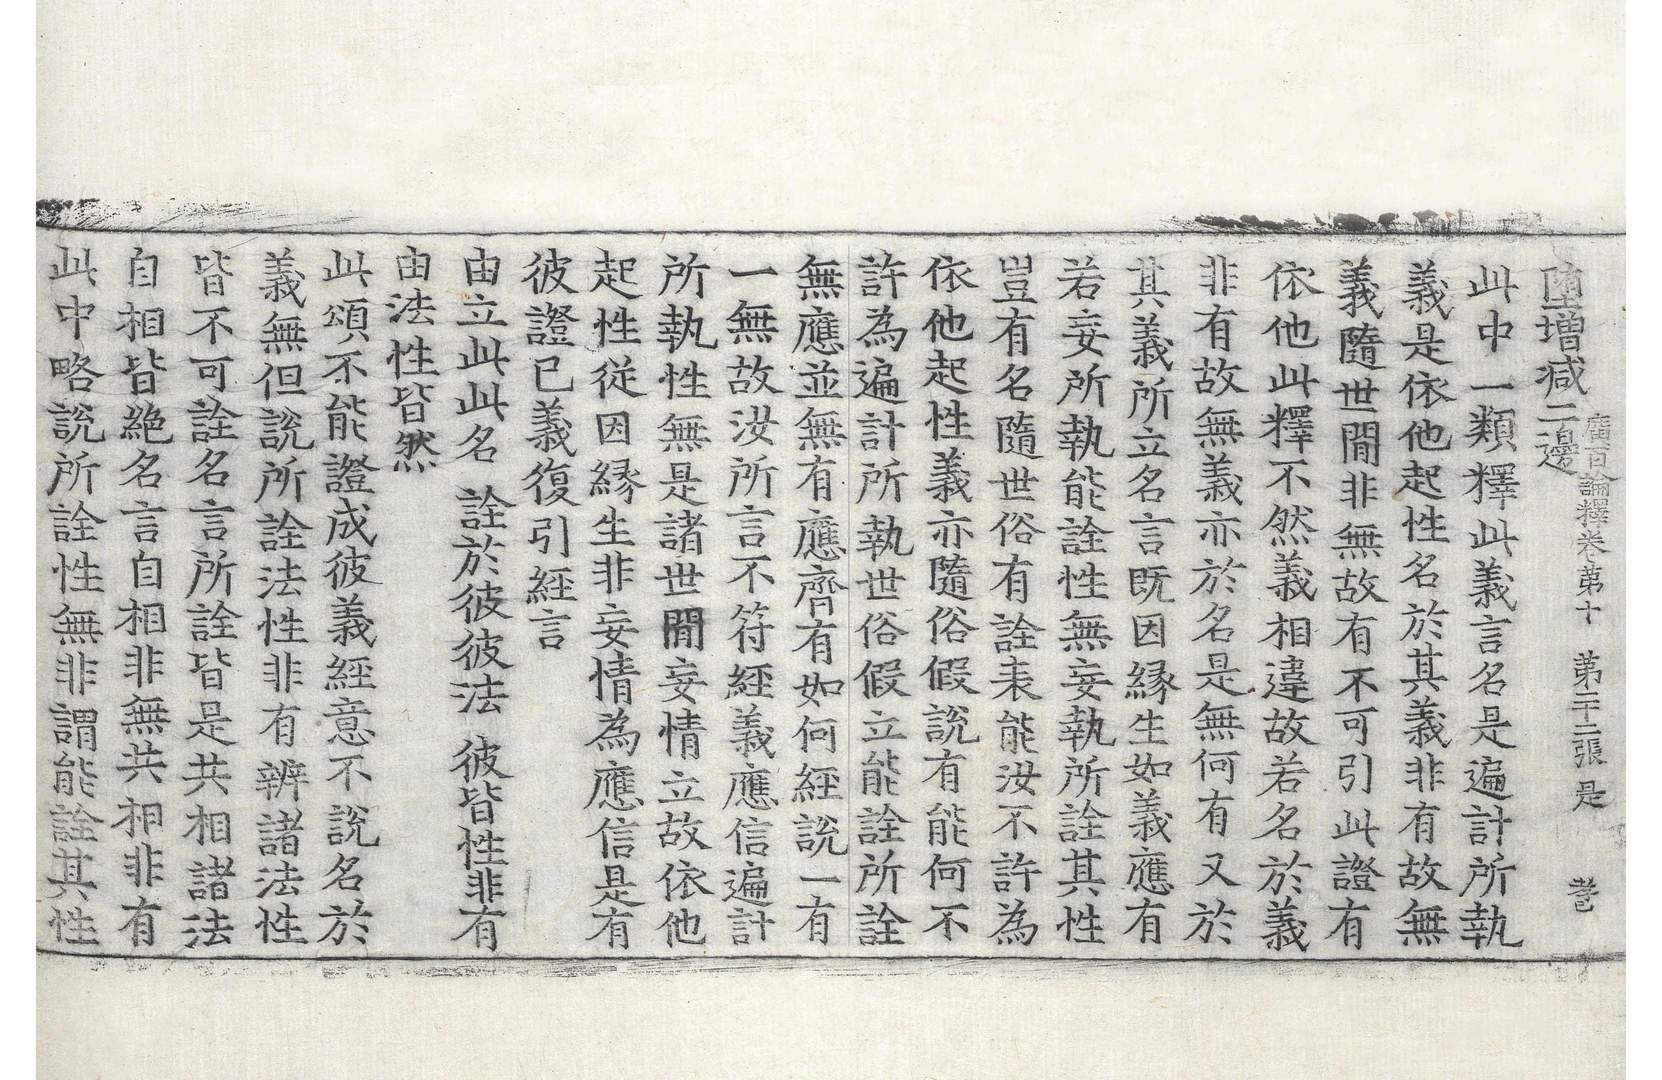 墮增減二邊
廣百論釋卷第十　第二十二張　是
此中一類釋此義言名是遍計所執
義是依他起性名於其義非有故無
義隨世間非無故有不可引此證有
依他此釋不然義相違故若名於義
非有故無義亦於名是無何有又於
其義所立名言既因緣生如義應有
若妄所執能詮性無妄執所詮其性
豈有名隨世俗有詮表能汝不許為
依他起性義亦隨俗假說有能何不
許為遍計所執世俗假立能詮所詮
無應並無有應齊有如何經說一有
一無故汝所言不符經義應信遍計
所執性無是諸世間妄情立故依他
起性從因緣生非妄情為應信是有
彼證已義復引經言
由立此此名　詮於彼彼法　彼皆性非有
由法性皆然
此頌不能證成彼義經意不說名於
義無但說所詮法性非有辨諸法性
皆不可詮名言所詮皆是共相諸法
自相皆絕名言自相非無共相非有
此中略說所詮性無非謂能詮其性